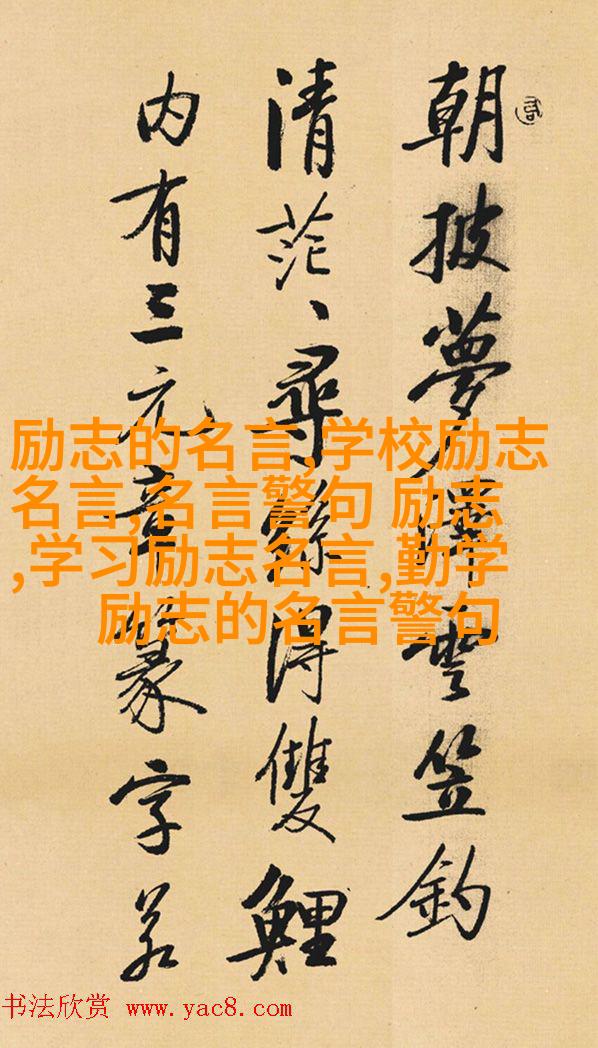 朝披夢澤雲笠釣
清茫、尋絲得雙鯉
内有三元章篆字若
励志的名言,学校励志
名言,名言警句 励志
,学习励志名言,勤学
励志的名言警句
书法欣赏 www.yac8.com